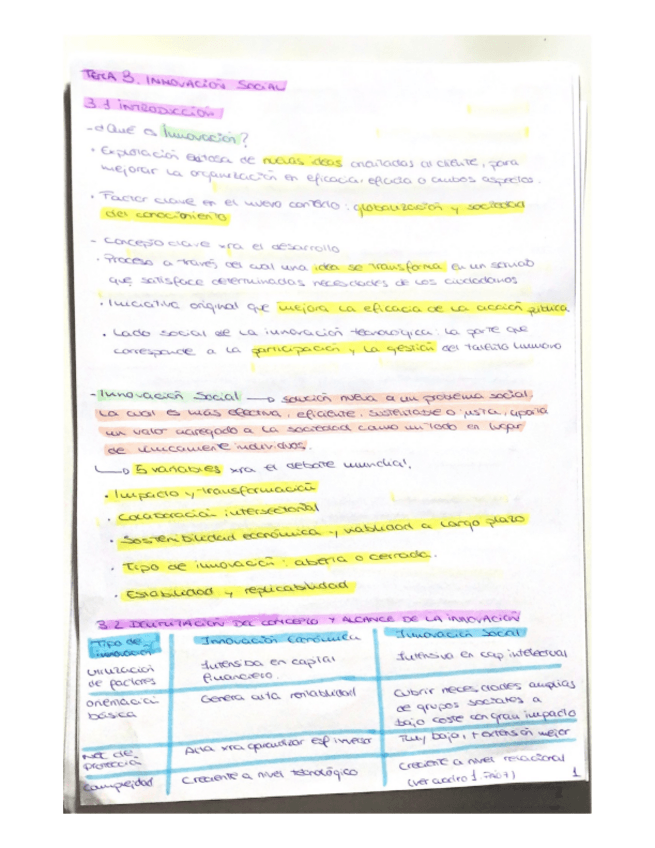 TEMA 3. INNOVACIÓN SOCIAL
3.1 INTRODUCCIÓN
- ¿Qué es Innovación?
· Explotación exitosa de nuevas ideas al cliente, para
mejorar la organización en eficacia, eficida o ambos aspectos.
· Factor clave en el nuevo contexto: globalización y sociedad
del conocimiento
- Concepto clave xra el desarrollo
· Proceso a través del cual una idea se transforma en un
que satisface determinadas necesidades de los ciudadanos
· Iniciativa original que mejora la eficacia de la acción pública
· Lado social de la innovación tecnológica: la parte que
corresponde a la participación y la gestión del talento humano
- Innovación Social → solución nueva a un problema social,
la cual es más efectiva, eficiente, sustentable o justa, aporta
un valor agregado a la sociedad como un todo en lugar
de únicamente individuos.
↳ 5 variables xra el debate mundial.
· Impacto y transformación
· Colaboración intersectorial
· Sostenibilidad económica y viabilidad a largo plazo
· Tipo de innovación: abierta o cerrada.
· Estabilidad y replicabilidad
3.2 DELIMITACIÓN DEL CONCEPTO Y ALCANCE DE LA INNOVACIÓN
Tipo de innovación | Innovación Económica | Innovación Social
Utilización de factores | Intensiva en capital financiero. | Intensiva en cap intelectual
orientación básica | Genera alta rentabilidad | Cubrir necesidades amplias de grupos sociales a bajo coste con gran impacto
de protección | Alta xra garantizar inversor | Muy baja, + extensión mejor
Complejidad | Creciente a nivel tecnológico | Creciente a nivel relacional
(ver cuadro 1
1